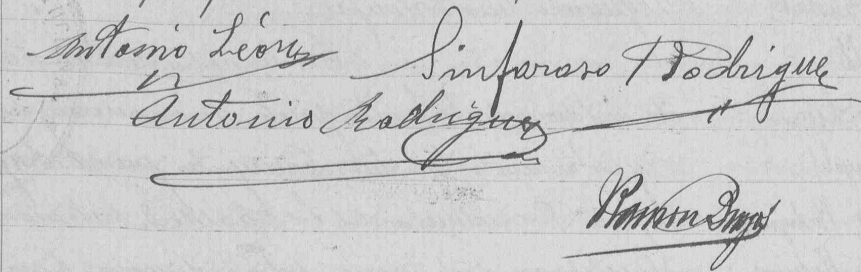 Antonio León
Sinforoso Rodriguez
Antonio Rodriguez
Ramon